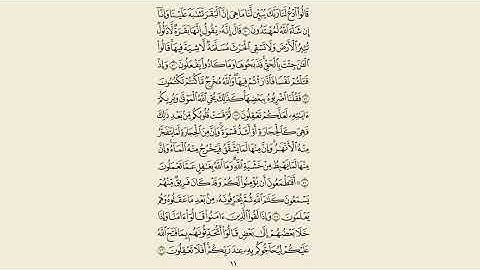 قَالُوا۟ ٱدْعُ لَنَا رَبَّكَ يُبَيِّن لَّنَا مَا هِىَ إِنَّ ٱلْبَقَرَ تَشَٰبَهَ عَلَيْنَا وَإِنَّآ
إِن شَآءَ ٱللَّهُ لَمُهْتَدُونَ ٧٠ قَالَ إِنَّهُۥ يَقُولُ إِنَّهَا بَقَرَةٌ لَّا ذَلُولٌ
تُثِيرُ ٱلْأَرْضَ وَلَا تَسْقِى ٱلْحَرْثَ مُسَلَّمَةٌ لَّا شِيَةَ فِيهَا قَالُوا۟
ٱلْـَٰٔنَ جِئْتَ بِٱلْحَقِّ فَذَبَحُوهَا وَمَا كَادُوا۟ يَفْعَلُونَ ٧١ وَإِذْ
قَتَلْتُمْ نَفْسًا فَٱدَّٰرَْٰٔتُمْ فِيهَا وَٱللَّهُ مُخْرِجٌ مَّا كُنتُمْ تَكْتُمُونَ
٧٢ فَقُلْنَا ٱضْرِبُوهُ بِبَعْضِهَا كَذَٰلِكَ يُحْىِ ٱللَّهُ ٱلْمَوْتَىٰ وَيُرِيكُمْ
ءَايَٰتِهِۦ لَعَلَّكُمْ تَعْقِلُونَ ٧٣ ثُمَّ قَسَتْ قُلُوبُكُم مِّنۢ بَعْدِ ذَٰلِكَ
فَهِىَ كَٱلْحِجَارَةِ أَوْ أَشَدُّ قَسْوَةً وَإِنَّ مِنَ ٱلْحِجَارَةِ لَمَا يَتَفَجَّرُ
مِنْهُ ٱلْأَنْهَٰرُ وَإِنَّ مِنْهَا لَمَا يَشَّقَّقُ فَيَخْرُجُ مِنْهُ ٱلْمَآءُ وَإِنَّ
مِنْهَا لَمَا يَهْبِطُ مِنْ خَشْيَةِ ٱللَّهِ وَمَا ٱللَّهُ بِغَٰفِلٍ عَمَّا تَعْمَلُونَ
٧٤ ۞ أَفَتَطْمَعُونَ أَن يُؤْمِنُوا۟ لَكُمْ وَقَدْ كَانَ فَرِيقٌ مِّنْهُمْ
يَسْمَعُونَ كَلَٰمَ ٱللَّهِ ثُمَّ يُحَرِّفُونَهُۥ مِنۢ بَعْدِ مَا عَقَلُوهُ وَهُمْ
يَعْلَمُونَ ٧٥ وَإِذَا لَقُوا۟ ٱلَّذِينَ ءَامَنُوا۟ قَالُوٓا۟ ءَامَنَّا وَإِذَا
خَلَا بَعْضُهُمْ إِلَىٰ بَعْضٍ قَالُوٓا۟ أَتُحَدِّثُونَهُم بِمَا فَتَحَ ٱللَّهُ
عَلَيْكُمْ لِيُحَآجُّوكُم بِهِۦ عِندَ رَبِّكُمْ أَفَلَا تَعْقِلُونَ ٧٦
١١